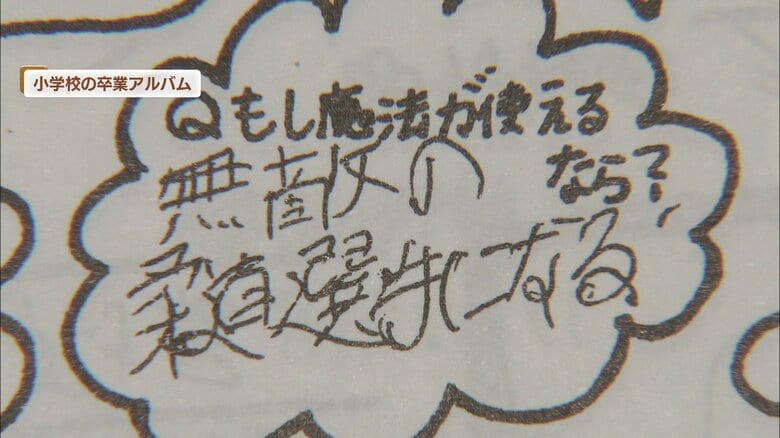 小学校の卒業アルバム
Qもし魔法が使える
なら?
無敵の
柔道選手になる